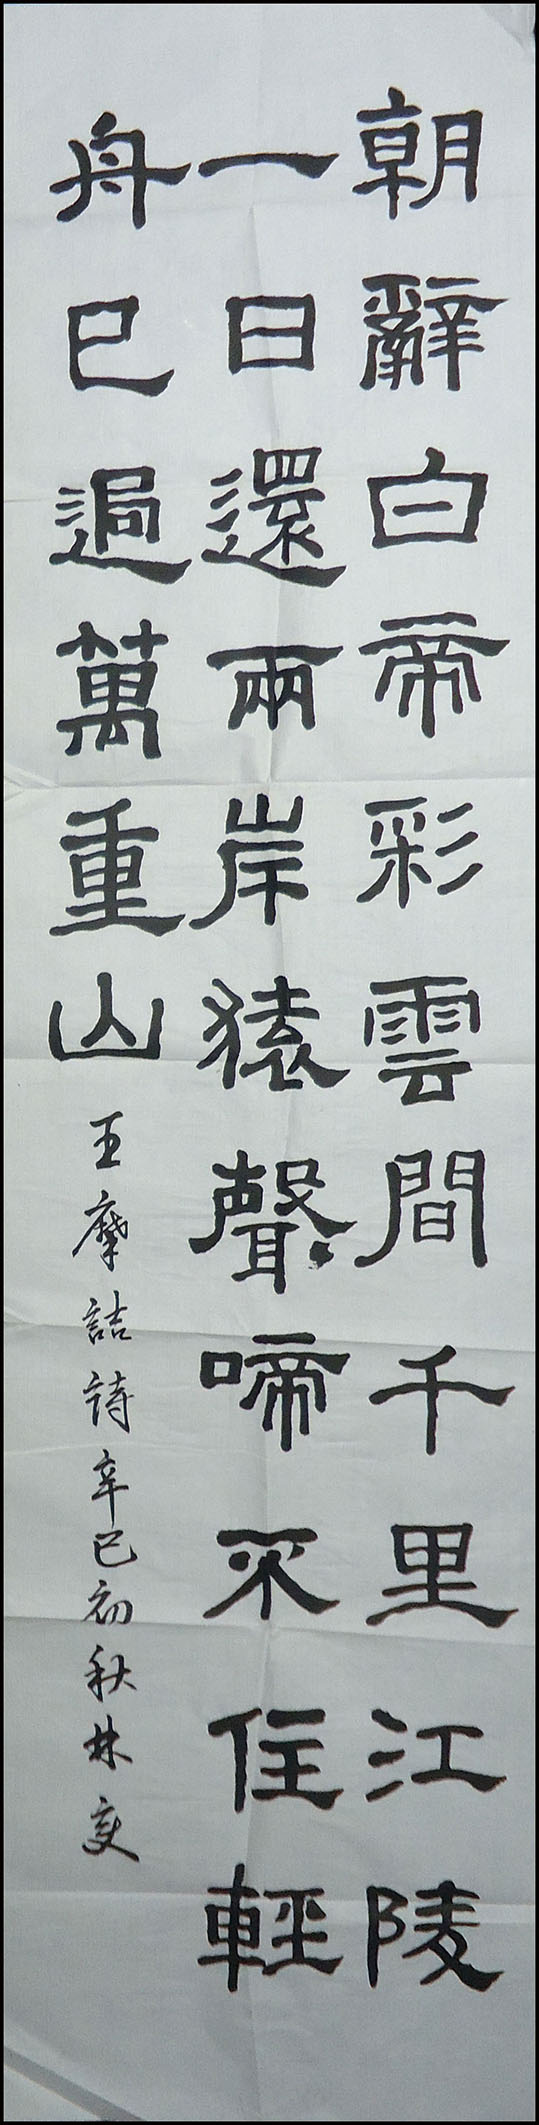 朝辭白帝彩雲間千里江陵
一日還兩岸猿聲啼不住輕
舟已過萬重山
王摩詰詩辛巳初秋林